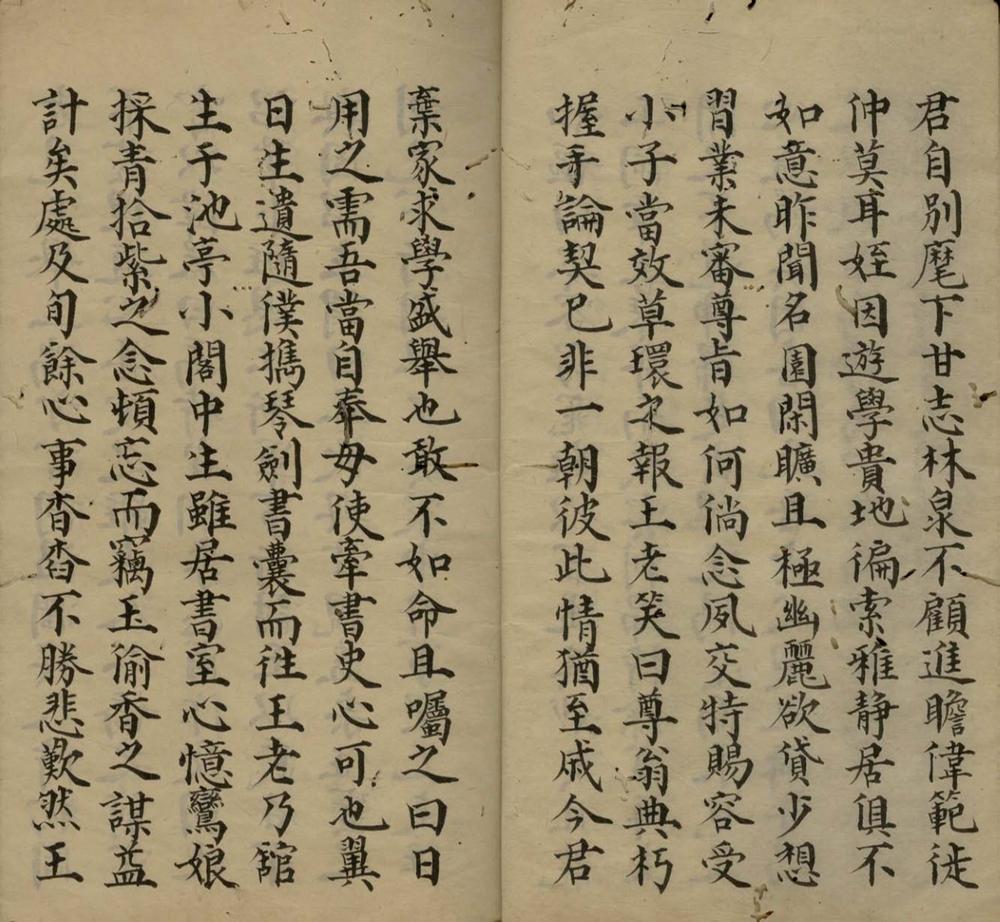 君自別麾下甘志林泉不顧進瞻偉範徒
仲莫耳姪因遊學貴地徧索雅靜居俱不
如意昨聞名園閑曠且極幽麗欲貸少憩
習業未審尊旨如何倘念夙交特賜容受
小子當效草環之報王老笑曰尊翁與朽
握手論契已非一朝彼此情猶至戚今君
棄家求學盛舉也敢不如命且囑之曰日
用之需吾當自奉毋使牽書史心可也翼
日生遣隨僕攜琴劍書囊而徃王老乃舘
生于池亭小閣中生雖居書室心憶鸞娘
採青拾紫之念頓忘而竊玉偷香之謀益
計矣處及旬餘心事杳杳不勝悲歎然王